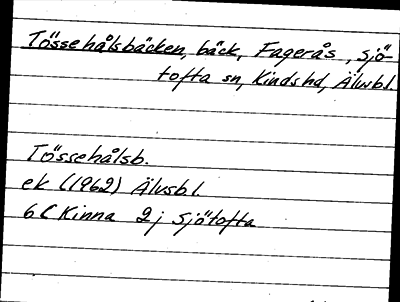 Tössehålsbäcken, bäck, Fagerås, Sjö-
tofta sn, Kinds hd, Älvsbl.
Tössehålsb.
ek (1962) Älvsbl.
6C Kinna 2j Sjötofta